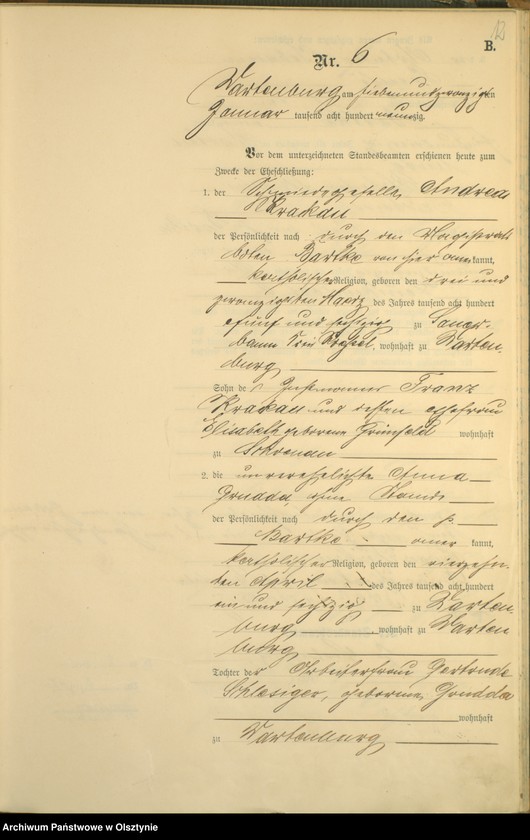 12
B.
Nr. 6
Wartenburg am siebenundzwanzigsten
Januar tausend acht hundert neunzig.
Vor dem unterzeichneten Standesbeamten erschienen heute zum
Zwecke der Eheschließung:
1. der Schmiedegeselle Andreas
Krakau
der Persönlichkeit nach durch den Magistrats
boten Bartke von hier anerkannt,
katholischer Religion, geboren den drei und
zwanzigsten März des Jahres tausend acht hundert
fünf und sechszig zu
wohnhaft zu Warten
burg
Sohn des Franz
Krakau und dessen Ehefrau
Elisabeth geborene Grünfeld wohnhaft
zu
2. die unverehelichte Anna
Gondda, ohne Stand
der Persönlichkeit nach durch den p.
Bartke anerkannt,
katholischer Religion, geboren den vierzehn
ten April des Jahres tausend acht hundert
ein und sechszig zu Warten
burg wohnhaft zu Warten
burg
Tochter der Arbeiterfrau Gertrude
Schlesiger, geborene Gondda
wohnhaft
zu Wartenburg
Archiwum Państwowe w Olsztynie